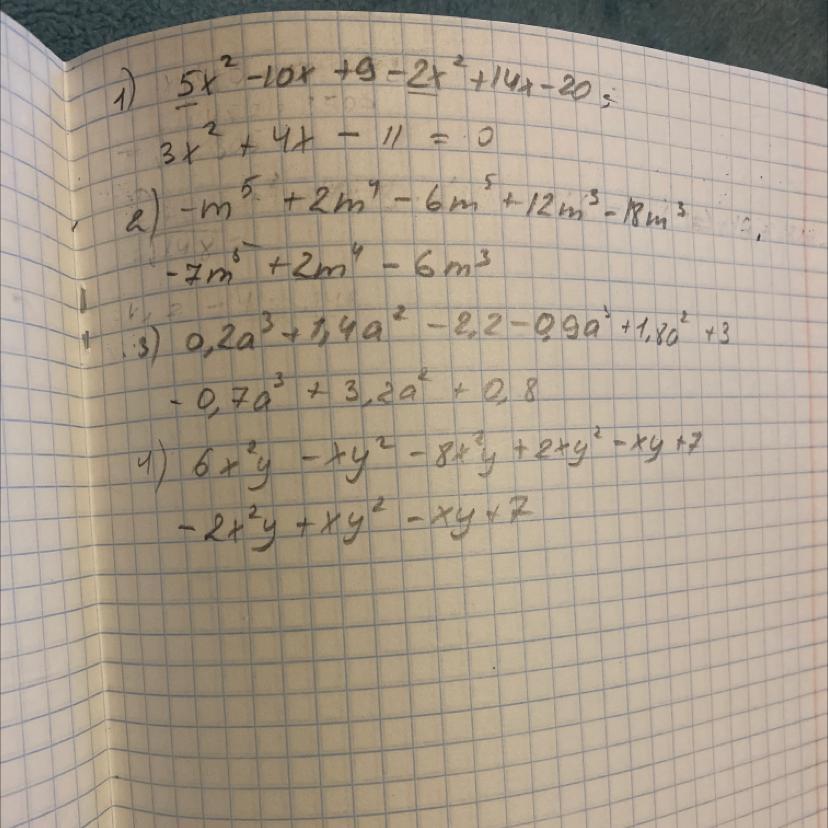 1) 5x² -10x +9 -2x² +14x -20;
3x² + 4x - 11 = 0
2) -m⁵ +2m⁴ - 6m⁵ +12m³ -18m³
-7m⁵ +2m⁴ - 6m³
3) 0,2a³ + 1,4a² - 2,2 - 0,9a³ +1,8a² +3
- 0,7a³ + 3,2a² + 0,8
4) 6x²y - xy² - 8x²y + 2xy² - xy +7
- 2x²y + xy² - xy + 7